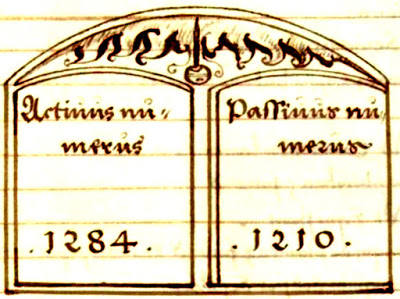 Actiuus nu=
merus
.1284.
Passiuus nu
merus
.1210.